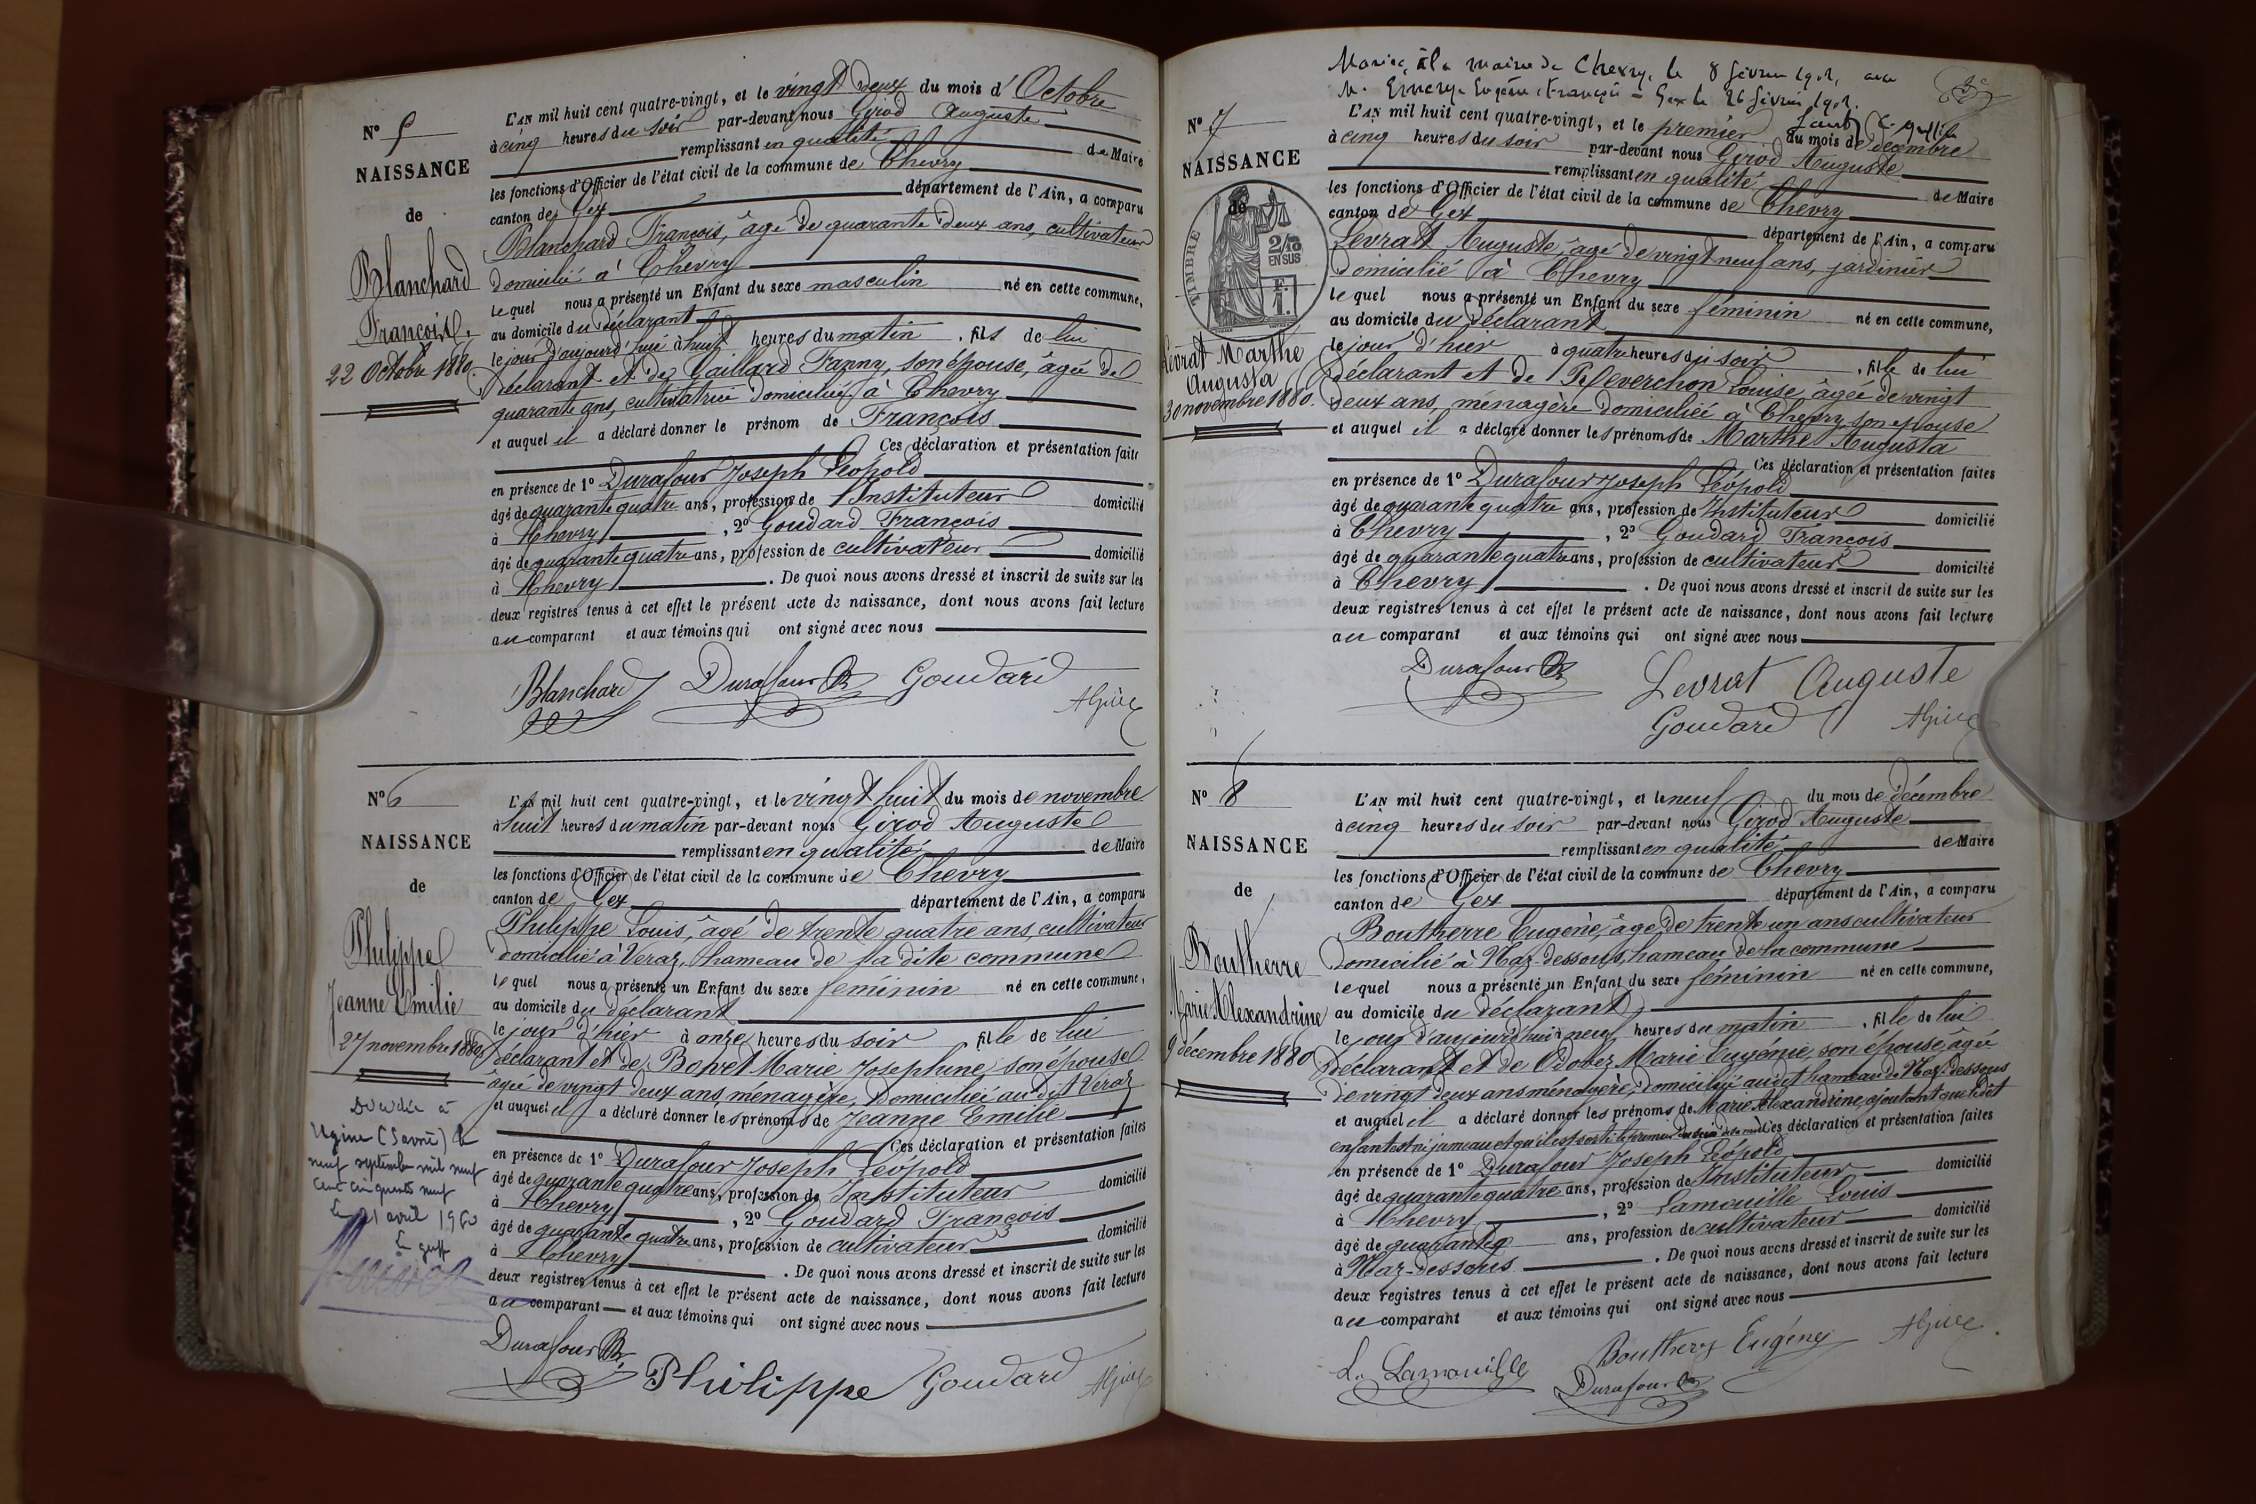 Nº 5
NAISSANCE
de
Blanchard
François
22 Octobre 1880
L'AN mil huit cent quatre-vingt, et le vingt deux du mois d'Octobre
à cinq heures du soir par-devant nous Girod Auguste
remplissant en qualité de Maire
les fonctions d'Officier de l'état civil de la commune de Chevry
canton de Gex département de l'Ain, a comparu
Blanchard François, âgé de quarante deux ans, cultivateur
domicilié à Chevry
le quel nous a présenté un Enfant du sexe masculin né en cette commune,
au domicile du déclarant
le jour d'aujourd'hui à huit heures du matin, fils de lui
déclarant et de Gaillard Fanny, son épouse, âgée de
quarante ans, cultivatrice domiciliée à Chevry
et auquel il a déclaré donner le prénom de François
Ces déclaration et présentation faites
en présence de 1º Durafour Joseph Léopold
âgé de quarante quatre ans, profession de Instituteur domicilié
à Chevry, 2º Goudard François
âgé de quarante quatre ans, profession de cultivateur domicilié
à Chevry. De quoi nous avons dressé et inscrit de suite sur les
deux registres tenus à cet effet le présent acte de naissance, dont nous avons fait lecture
au comparant et aux témoins qui ont signé avec nous
Blanchard Durafour Goudard
Nº 6
NAISSANCE
de
Philippe
Jeanne Emilie
27 novembre 1880
Décédée à
Ugine (Savoie) le
neuf septembre mil neuf
cent cinquante neuf
Le 21 avril 1960
L'AN mil huit cent quatre-vingt, et le vingt huit du mois de novembre
à huit heures du matin par-devant nous Girod Auguste
remplissant en qualité de Maire
les fonctions d'Officier de l'état civil de la commune de Chevry
canton de Gex département de l'Ain, a comparu
Philippe Louis, âgé de trente quatre ans, cultivateur
domicilié à Veraz, hameau de la dite commune
le quel nous a présenté un Enfant du sexe féminin né en cette commune,
au domicile du déclarant
le jour d'hier à onze heures du soir fille de lui
déclarant et de Bonet Marie Josephine son épouse
âgée de vingt deux ans, ménagère, domiciliée au dit Véraz
et auquel il a déclaré donner les prénoms de Jeanne Emilie
Ces déclaration et présentation faites
en présence de 1º Durafour Joseph Léopold
âgé de quarante quatre ans, profession de Instituteur domicilié
à Chevry, 2º Goudard François
âgé de quarante quatre ans, profession de cultivateur domicilié
à Chevry. De quoi nous avons dressé et inscrit de suite sur les
deux registres tenus à cet effet le présent acte de naissance, dont nous avons fait lecture
au comparant et aux témoins qui ont signé avec nous
Durafour Philippe Goudard
Mariée à la mairie de Chevry, le 8 février 1902, avec
M. Emery Eugène François - Gex le 26 février 1902.
Nº 7
NAISSANCE
de
TIMBRE
2/10
EN SUS
Levrat Marthe
Augusta
30 novembre 1880.
L'AN mil huit cent quatre-vingt, et le premier du mois de décembre
à cinq heures du soir par-devant nous Girod Auguste
remplissant en qualité de Maire
les fonctions d'Officier de l'état civil de la commune de Chevry
canton de Gex département de l'Ain, a comparu
Levrat Auguste, âgé de vingt neuf ans, jardinier
domicilié à Chevry
le quel nous a présenté un Enfant du sexe féminin né en cette commune,
au domicile du déclarant
le jour d'hier à quatre heures du soir, fille de lui
déclarant et de Louise, âgée de vingt
deux ans, ménagère domiciliée à Chevry son épouse
et auquel il a déclaré donner les prénoms de Marthe Augusta
Ces déclaration et présentation faites
en présence de 1º Durafour Joseph Léopold
âgé de quarante quatre ans, profession de Instituteur domicilié
à Chevry, 2º Goudard François
âgé de quarante quatre ans, profession de cultivateur domicilié
à Chevry. De quoi nous avons dressé et inscrit de suite sur les
deux registres tenus à cet effet le présent acte de naissance, dont nous avons fait lecture
au comparant et aux témoins qui ont signé avec nous
Durafour Levrat Auguste
Goudard
Nº 8
NAISSANCE
de
Boutherre
Marie Alexandrine
9 décembre 1880
L'AN mil huit cent quatre-vingt, et le neuf du mois de décembre
à cinq heures du soir par-devant nous Girod Auguste
remplissant en qualité de Maire
les fonctions d'Officier de l'état civil de la commune de Chevry
canton de Gex département de l'Ain, a comparu
Boutherre Eugène, âgé de trente un ans cultivateur
domicilié à Naz-dessous, hameau de la commune
le quel nous a présenté un Enfant du sexe féminin né en cette commune,
au domicile du déclarant
le jour d'aujourd'hui à neuf heures du matin, fille de lui
déclarant et de Odobez Marie Eugénie, son épouse, âgée
de vingt deux ans ménagère, domiciliée au dit hameau de Naz-dessous
et auquel il a déclaré donner les prénoms de Marie Alexandrine, ajoutant que le dit
enfant est né jumeau et qu'il est sorti le premier du sein de la mère Ces déclaration et présentation faites
en présence de 1º Durafour Joseph Léopold
âgé de quarante quatre ans, profession de Instituteur domicilié
à Chevry, 2º Lamouille Louis
âgé de quarante ans, profession de cultivateur domicilié
à Naz-dessous. De quoi nous avons dressé et inscrit de suite sur les
deux registres tenus à cet effet le présent acte de naissance, dont nous avons fait lecture
au comparant et aux témoins qui ont signé avec nous
L. Lamouille Boutherre Eugène
Durafour